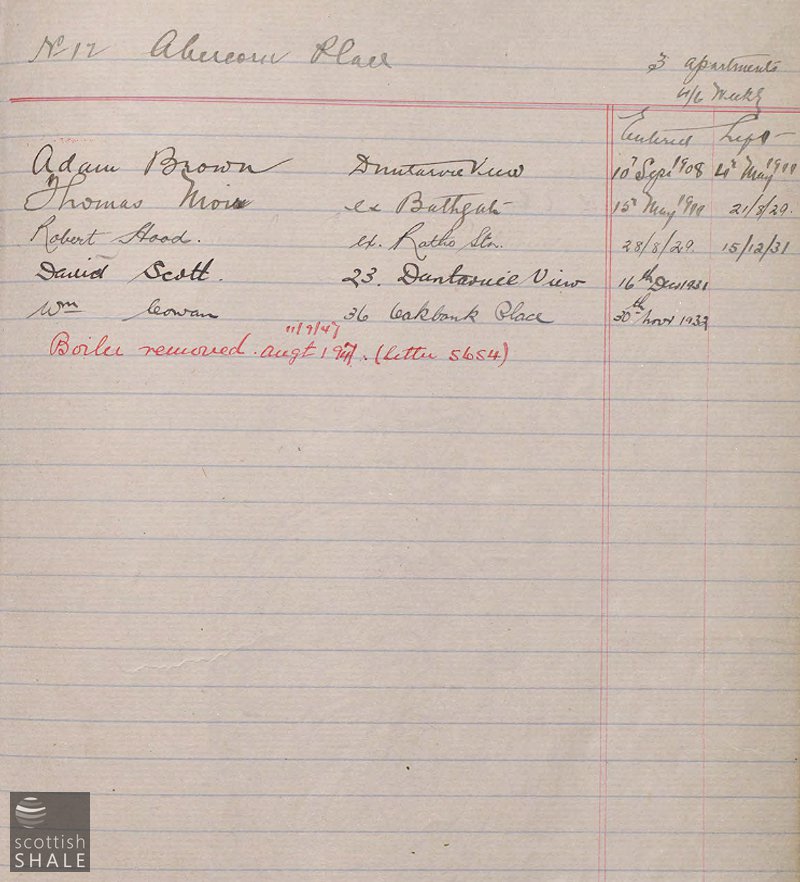 No 12 Abercorn Place
3 apartments
4/6 Weekly
Entered Left
Adam Brown Duntarvie View 10th Sept 1908 4th May
Thomas ex Bathgate 15th May 21/8/29.
Robert Hood. ex. Ratho Stn. 28/8/29. 15/12/31
David Scott. 23. Duntarvie View 16th Dec 1931
Wm Cowan 36 Oakbank Place 30th Novr
11/9/47
Boiler removed. Augt (letter 5654)
scottish
SHALE